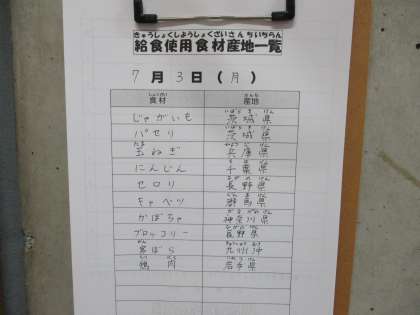 きゅうしょくしようしょくざいさんちいちらん
給食使用食材産地一覧
7月3日(月)
食材 産地
じゃがいも 茨城県
パセリ 茨城県
玉ねぎ 兵庫県
にんじん 千葉県
セロリ 長野県
キャベツ 群馬県
かぼちゃ 神奈川県
ブロッコリー 長野県
豚ばら 九州沖
鶏肉 岩手県